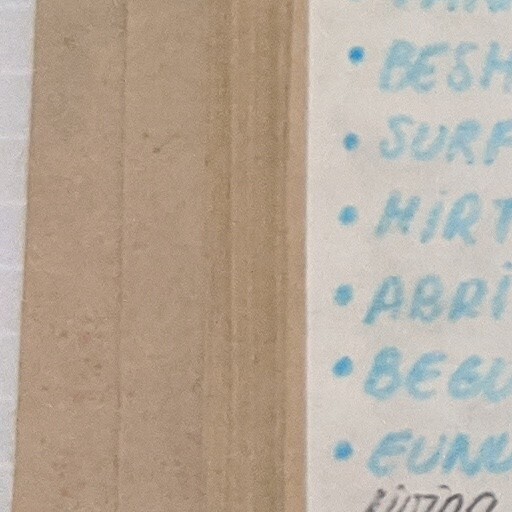 • BESH
• SURF
• MIRT
• ABRI
• BEGU
• EUNU